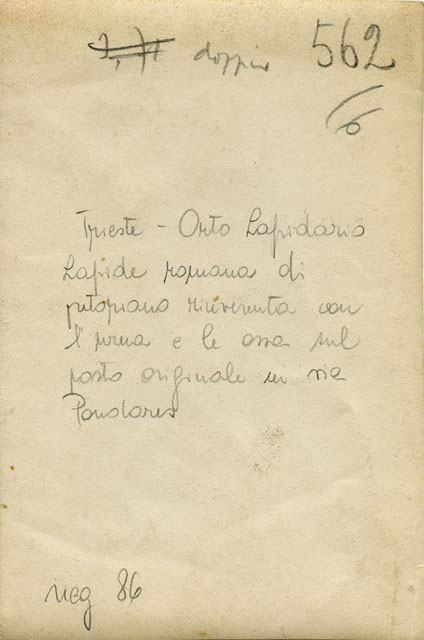 doppio 562
6
Trieste - Orto Lapidario
Lapide romana di
putopiano rinvenuta con
l'urna e le ossa sul
posto originale in via
Pondares
neg 86